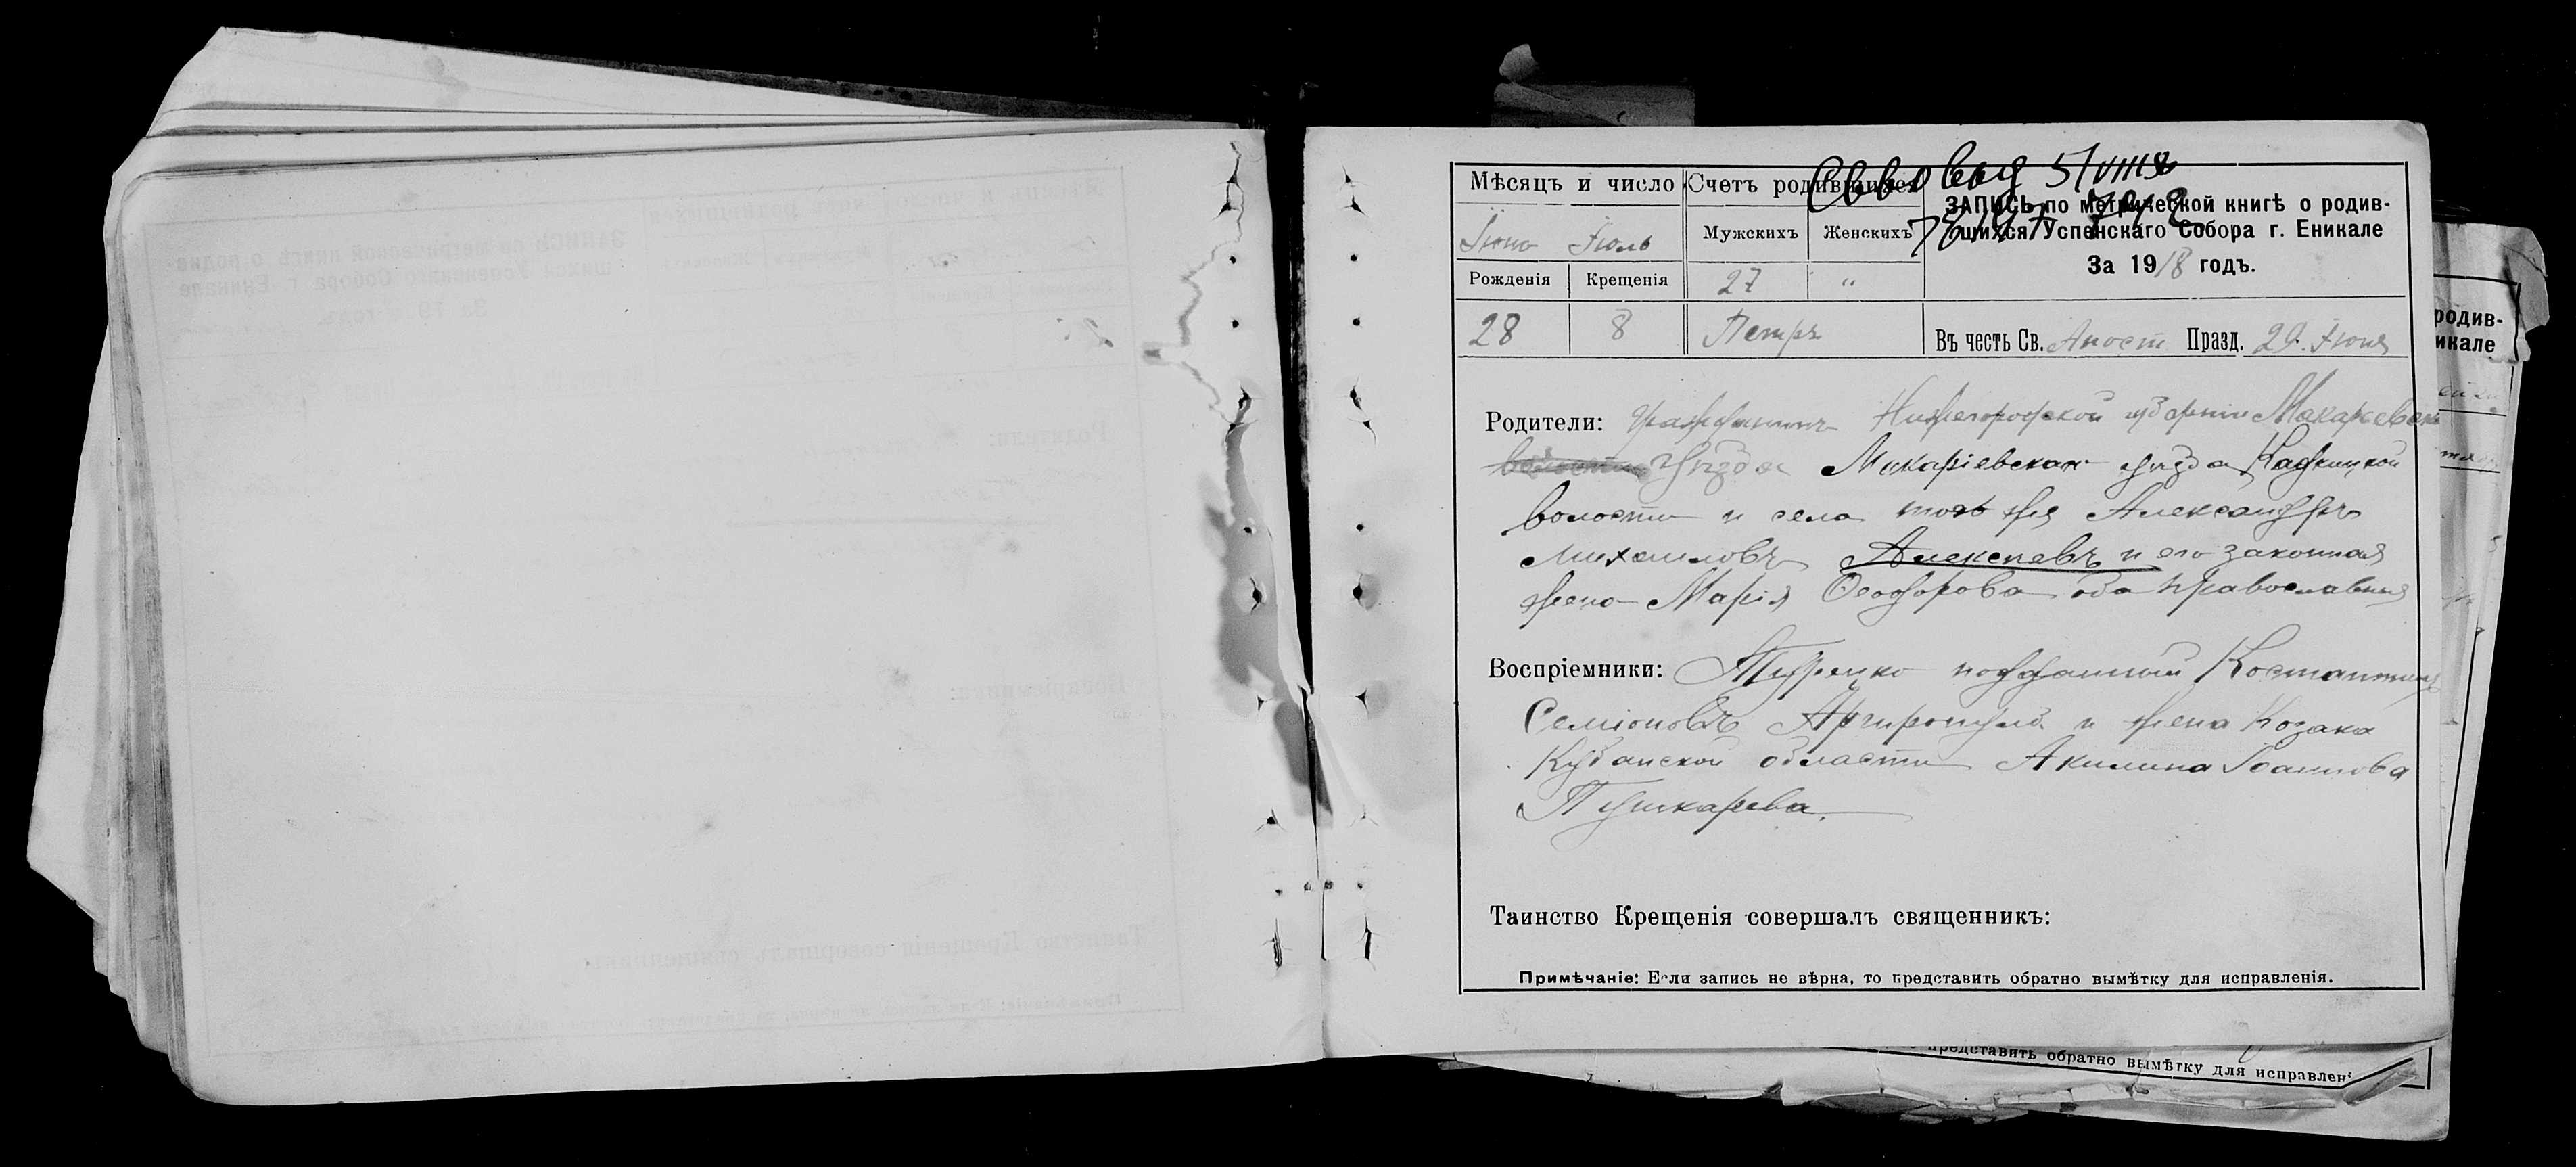 Мѣсяцъ и число
Счетъ родившихся
ЗАПИСЬ по метрической книгѣ о родив-
шихся Успенскаго Собора г. Еникале
За 1918 годъ.
Іюнь Іюль
Мужскихъ Женскихъ
Рожденія Крещенія
27 "
28 8 Петръ
Въ честь Св. Апост Празд. 29. Іюня
Родители: Гражданинъ Нижегородской губерніи Макарьевск
уѣзда Макаріевскаго уѣзда
волости и села той же Александръ
Михаиловъ Алексѣевъ и его законная
жена Марія Ѳеодорова оба православныя
Воспріемники: Турецко подданный Константинъ
Семіоновъ Аргиропуло и жена Козака
Кубанской области Акилина Іоаннова
Пушкарева.
Таинство Крещенія совершалъ священникъ:
Примѣчаніе: Если запись не вѣрна, то представить обратно вымѣтку для исправленія.
родив-
икале
представить обратно вымѣтку для исправлені